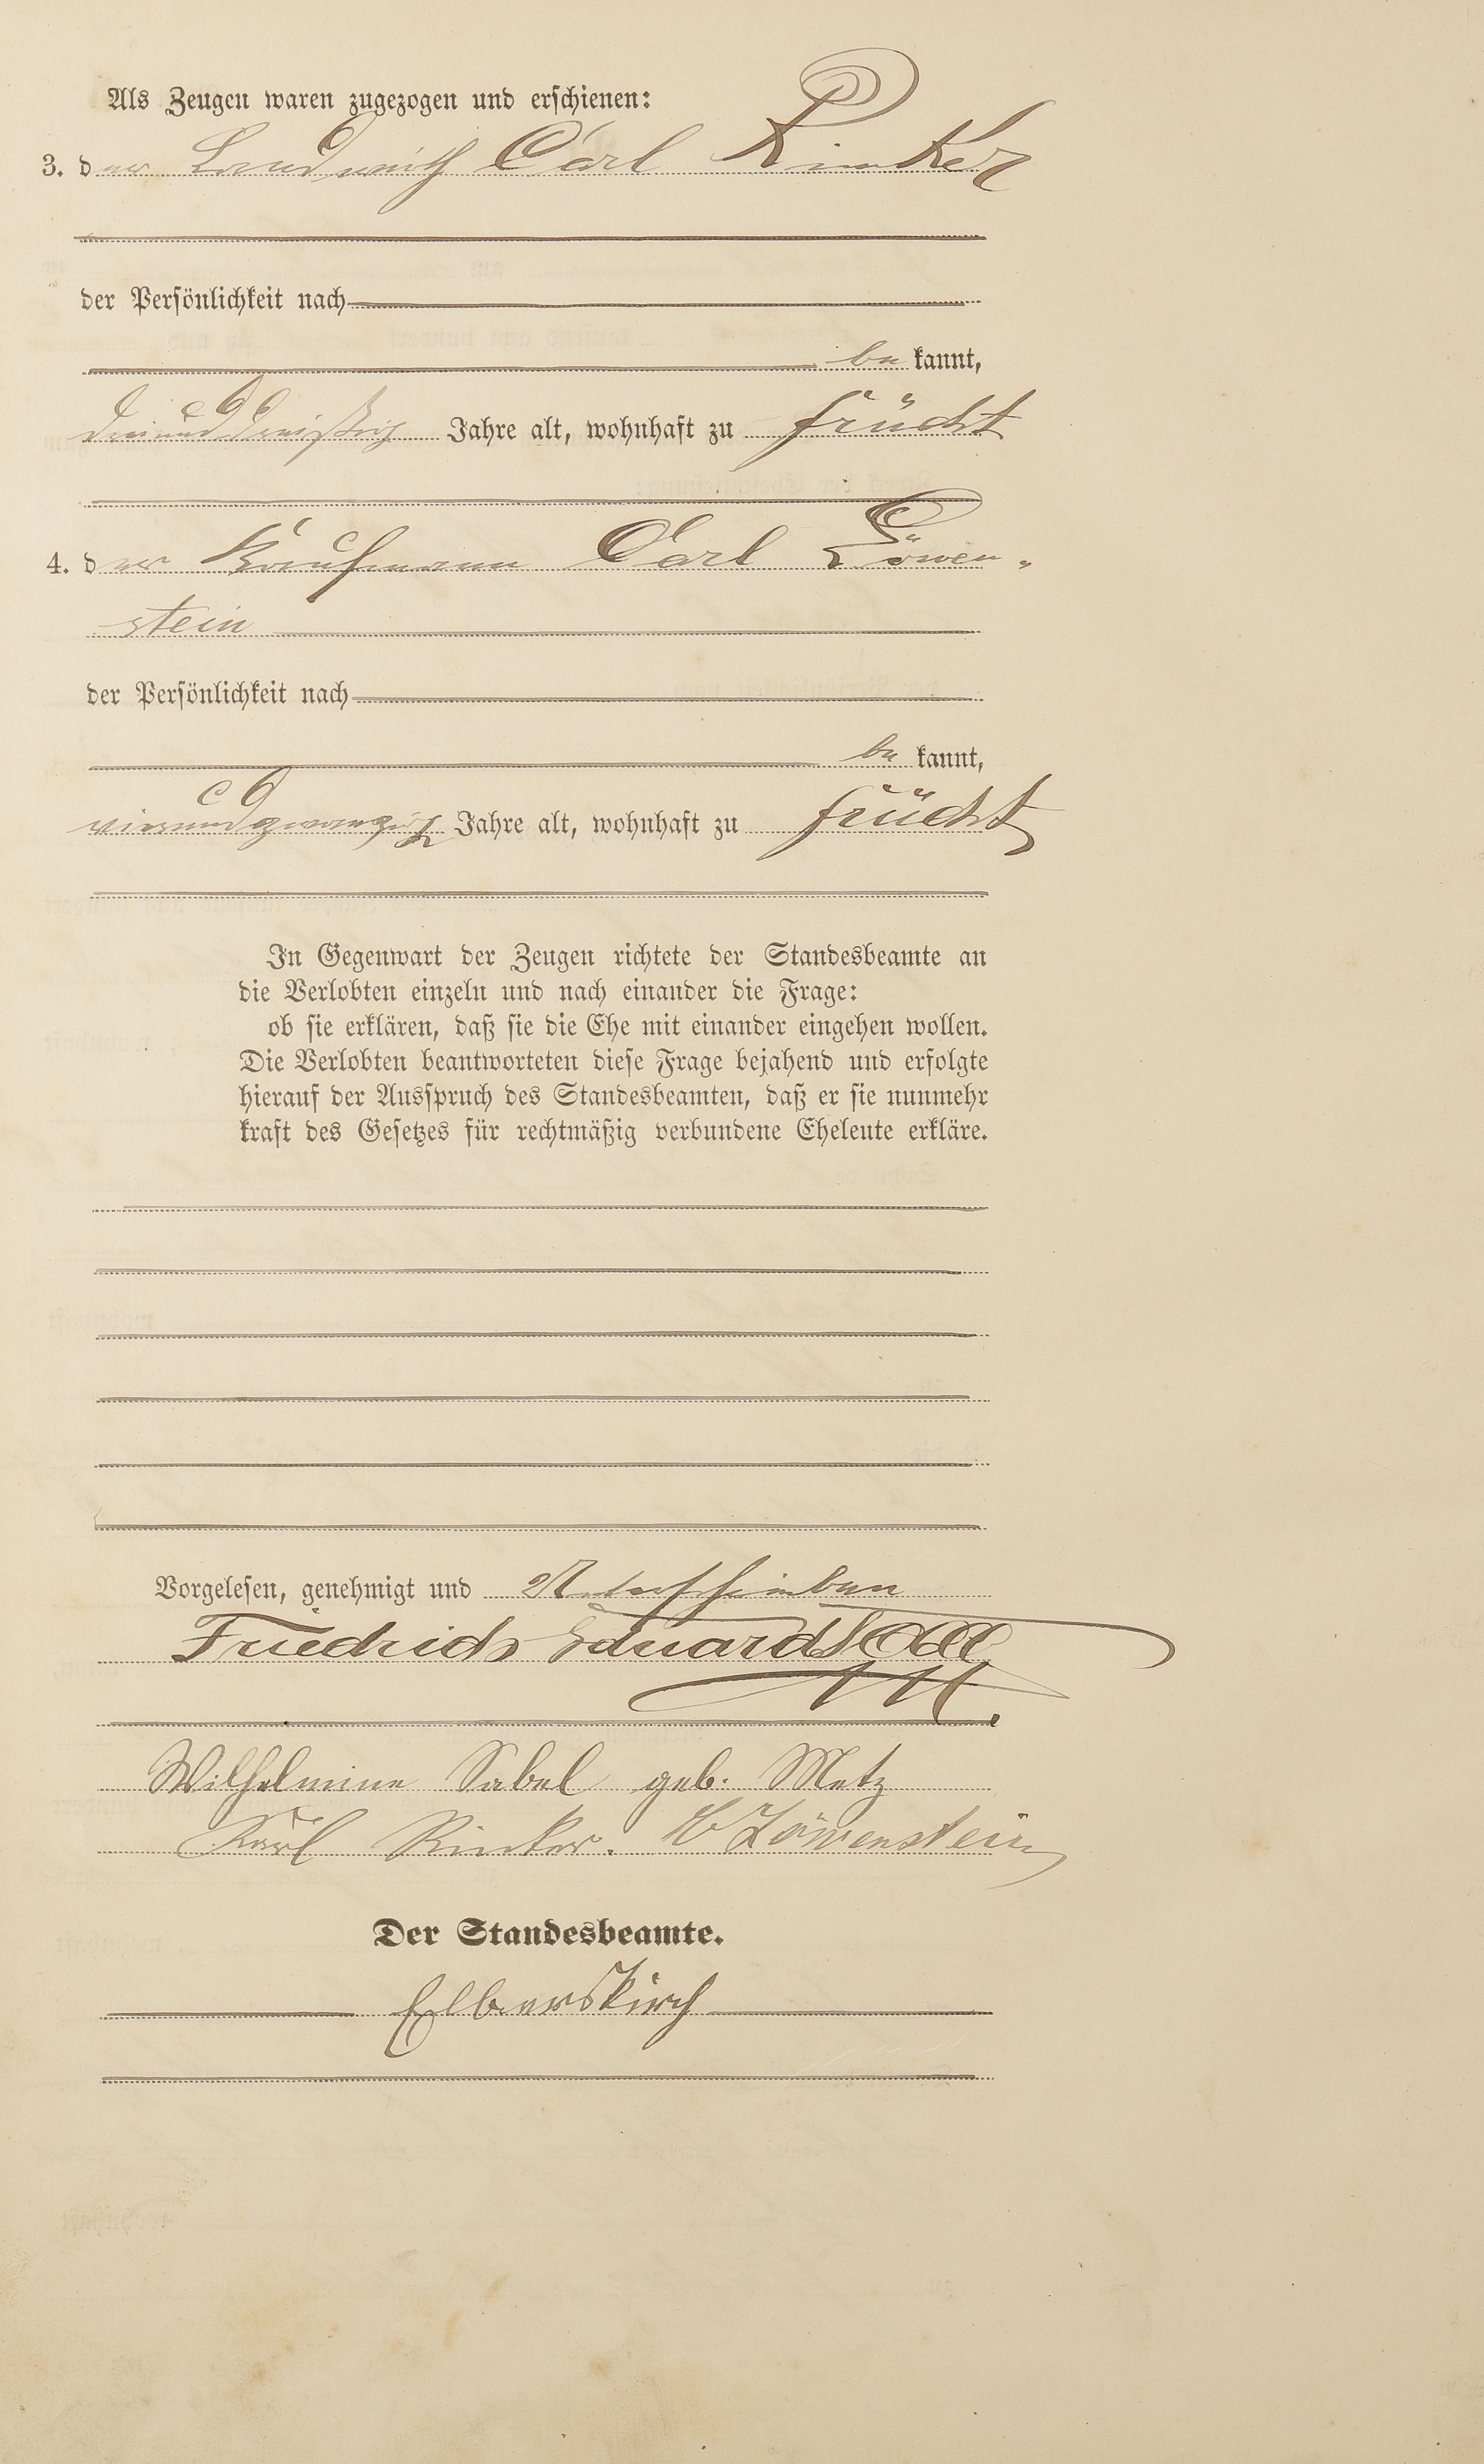 Als Zeugen waren zugezogen und erschienen:
3. der Landwirth Carl Rinker
der Persönlichkeit nach
be kannt,
dreiunddreißig Jahre alt, wohnhaft zu Frücht
4. der Kaufmann Carl Löwen-
stein
der Persönlichkeit nach
be kannt,
vierundzwanzig Jahre alt, wohnhaft zu Frücht
In Gegenwart der Zeugen richtete der Standesbeamte an
die Verlobten einzeln und nach einander die Frage:
ob sie erklären, daß sie die Ehe mit einander eingehen wollen.
Die Verlobten beantworteten diese Frage bejahend und erfolgte
hierauf der Ausspruch des Standesbeamten, daß er sie nunmehr
kraft des Gesetzes für rechtmäßig verbundene Eheleute erkläre.
Vorgelesen, genehmigt und Unterschrieben
Friedrich Eduard
Wilhelmine Sabel geb. Metz
Karl Rinker. C Löwenstein
Der Standesbeamte.
Elberskirch